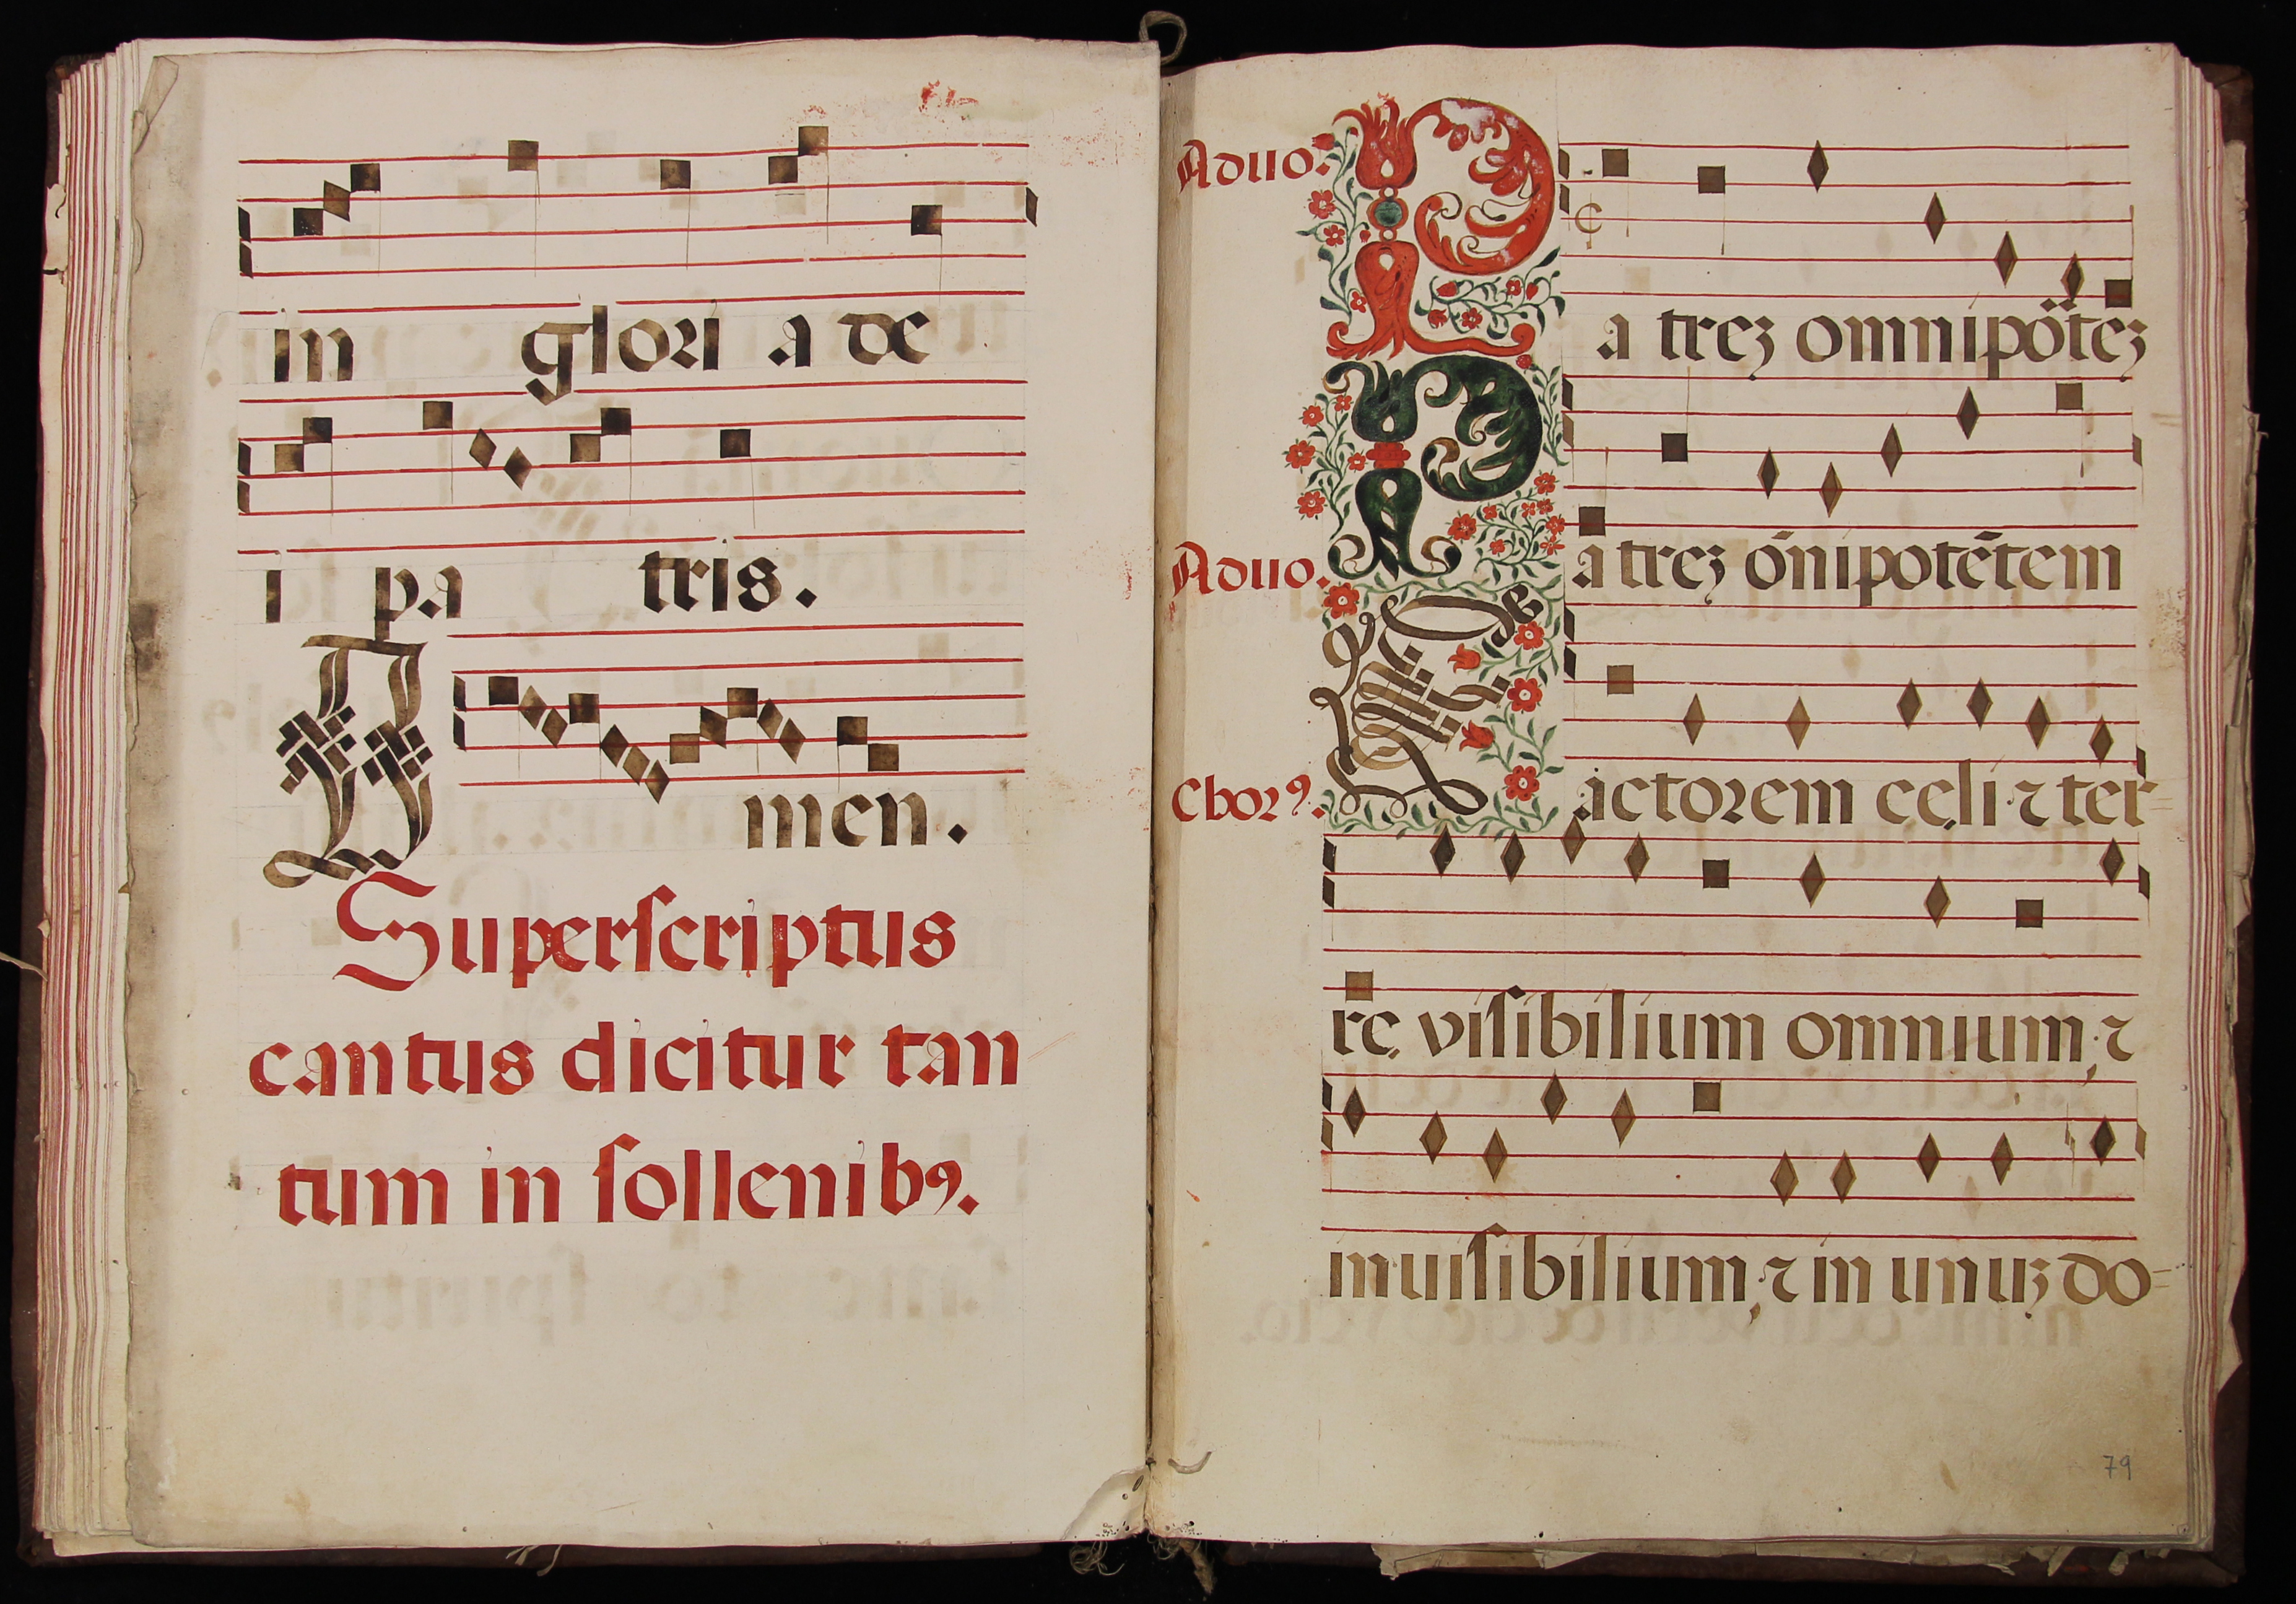 in glori a de
i pa tris.
Amen.
Superscriptus
cantus dicitur tan
tum in sollenibꝰ.
Aduo.
Patreʒ omnipõteʒ
Aduo.
Patreʒ õnipotẽtem
Chorꝰ.
Factorem celi ⁊ ter=
re visibilium omnium, ⁊
inuisibilium, ⁊ in unuʒ do=
79